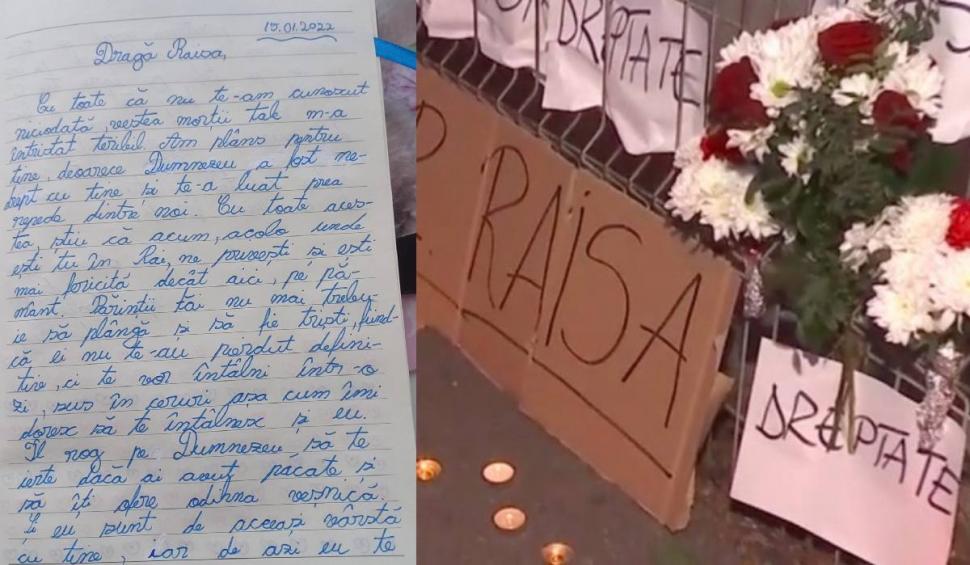 15.01.2022
Dragă Raisa,
Cu toate că nu te-am cunoscut
niciodată, vestea morții tale m-a
întristat teribil. Am plâns pentru
tine, deoarece Dumnezeu a fost ne-
drept cu tine și te-a luat prea
repede dintre noi. Cu toate aces-
tea, știu că acum, acolo unde
ești tu în Rai, ne privești și ești
mai fericită decât aici, pe pă-
mânt. Părinții tăi nu mai trebu-
ie să plângă și să fie triști, fiind-
că ei nu te-au pierdut defini-
tiv, ci te vor întâlni într-o
zi, sus în ceruri așa cum îmi
doresc să te întâlnesc și eu.
Îl rog pe Dumnezeu, să te
ierte dacă ai avut păcate și
să îți ofere odihna veșnică.
Și eu sunt de aceeași vârstă
cu tine, iar de azi eu te
DREPTATE
RAISA
DREPTATE